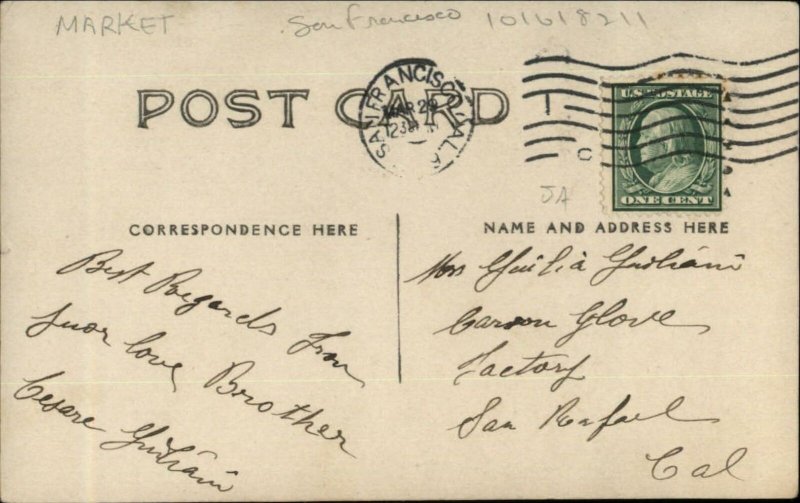 MARKET San Francisco 101618211
POST CARD
SAN FRANCISCO, CAL.
MAR 29
1
C
U.S. POSTAGE
ONE CENT
JA
CORRESPONDENCE HERE
NAME AND ADDRESS HERE
Best Regards From
your love Brother
Cesare Giuliani
Miss Giulia Giuliani
Carson Glove
Factory
San Rafael
Cal